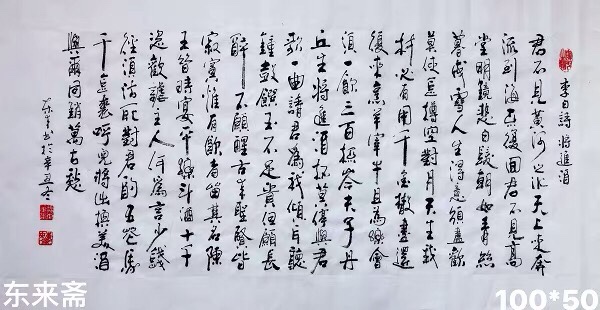 李白詩將進酒
君不見黃河之水天上來奔
流到海不復回君不見高
堂明鏡悲白髮朝如青絲
暮成雪人生得意須盡歡
莫使金樽空對月天生我
材必有用千金散盡還
復來烹羊宰牛且為樂會
須一飲三百杯岑夫子丹
丘生將進酒杯莫停與君
歌一曲請君為我傾耳聽
鐘鼓饌玉不足貴但願長
醉不願醒古來聖賢皆
寂寞惟有飲者留其名陳
王昔時宴平樂斗酒十千
恣歡謔主人何為言少錢
徑須沽取對君酌五花馬
千金裘呼兒將出換美酒
與爾同銷萬古愁
書於辛丑冬
东来斋
100*50